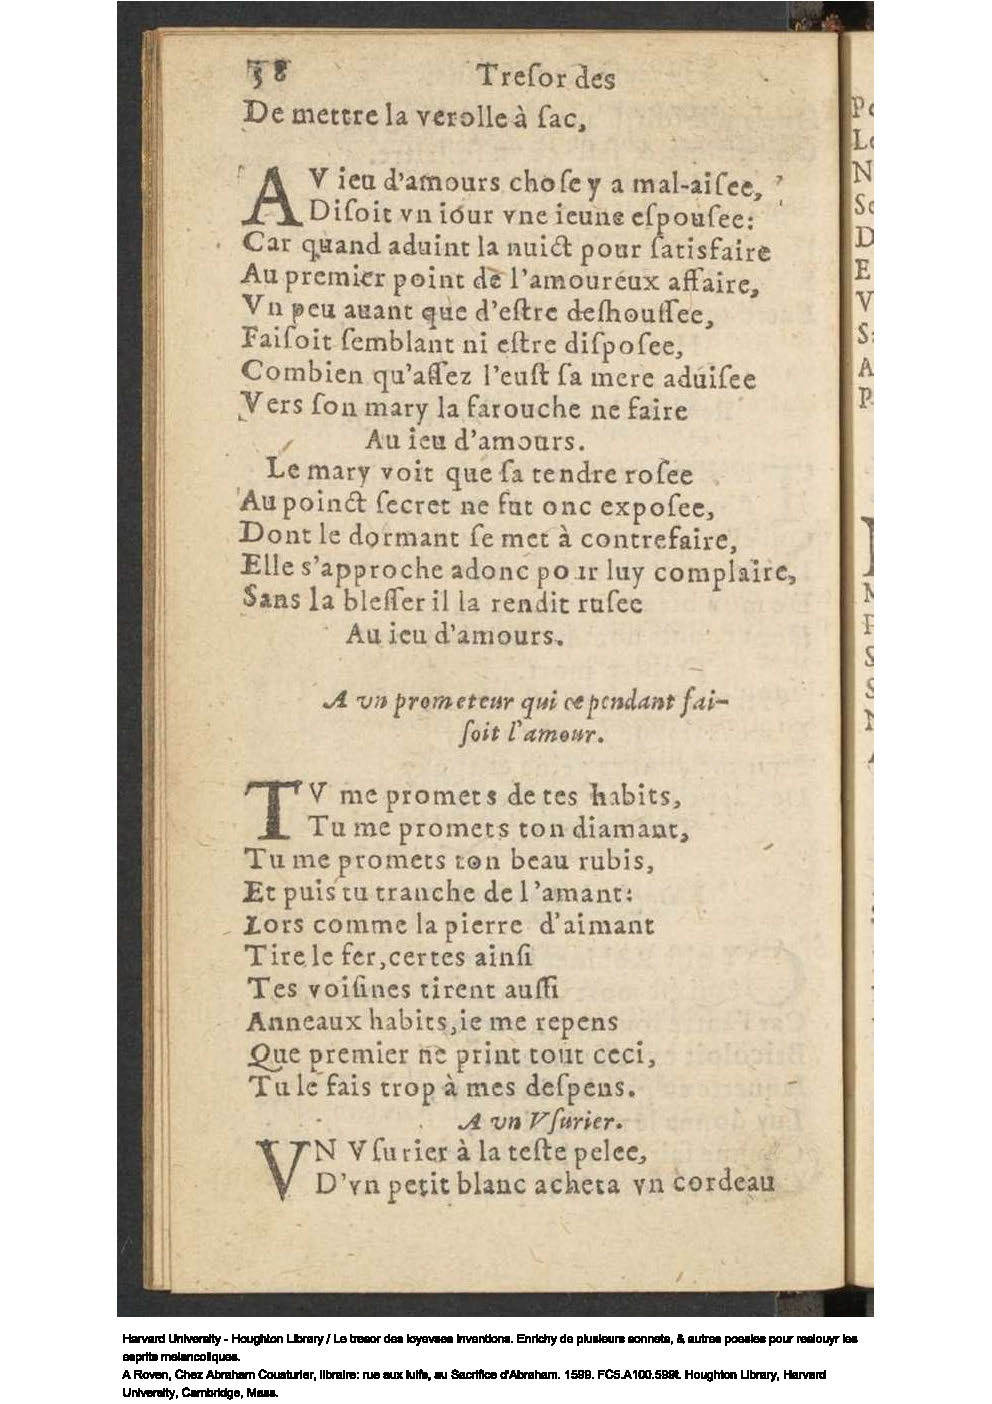 58 Tresor des
De mettre la verolle à sac,
AV ieu d'amours chose y a mal-aisee,
Disoit vn iour vne ieune espousee:
Car quand aduint la nuict pour satisfaire
Au premier point de l'amoureux affaire,
Vn peu auant que d'estre deshoussee,
Faisoit semblant ni estre disposee,
Combien qu'assez l'eust sa mere aduisee
Vers son mary la farouche ne faire
Au ieu d'amours.
Le mary voit que sa tendre rosee
Au poinct secret ne fut onc exposee,
Dont le dormant se met à contrefaire,
Elle s'approche adonc pour luy complaire,
Sans la blesser il la rendit rusee
Au ieu d'amours.
A vn prometeur qui cependant fai-
soit l'amour.
TV me promets de tes habits,
Tu me promets ton diamant,
Tu me promets ton beau rubis,
Et puis tu tranche de l'amant:
Lors comme la pierre d'aimant
Tire le fer, certes ainsi
Tes voisines tirent aussi
Anneaux habits, ie me repens
Que premier ne print tout ceci,
Tu le fais trop à mes despens.
A vn Vsurier.
VN Vsurier à la teste pelee,
D'vn petit blanc acheta vn cordeau
Po
Le
N
So
D
E
V
S
A
P
M
P
S
S
N
Harvard University - Houghton Library / Le tresor des ioyevses inventions. Enrichy de plusieurs sonnets, & autres poesies pour resiouyr les
esprits melancoliques.
A Roven, Chez Abraham Cousturier, libraire: rue aux Iuifs, au Sacrifice d'Abraham. 1599. FC5.A100.599t. Houghton Library, Harvard
University, Cambridge, Mass.